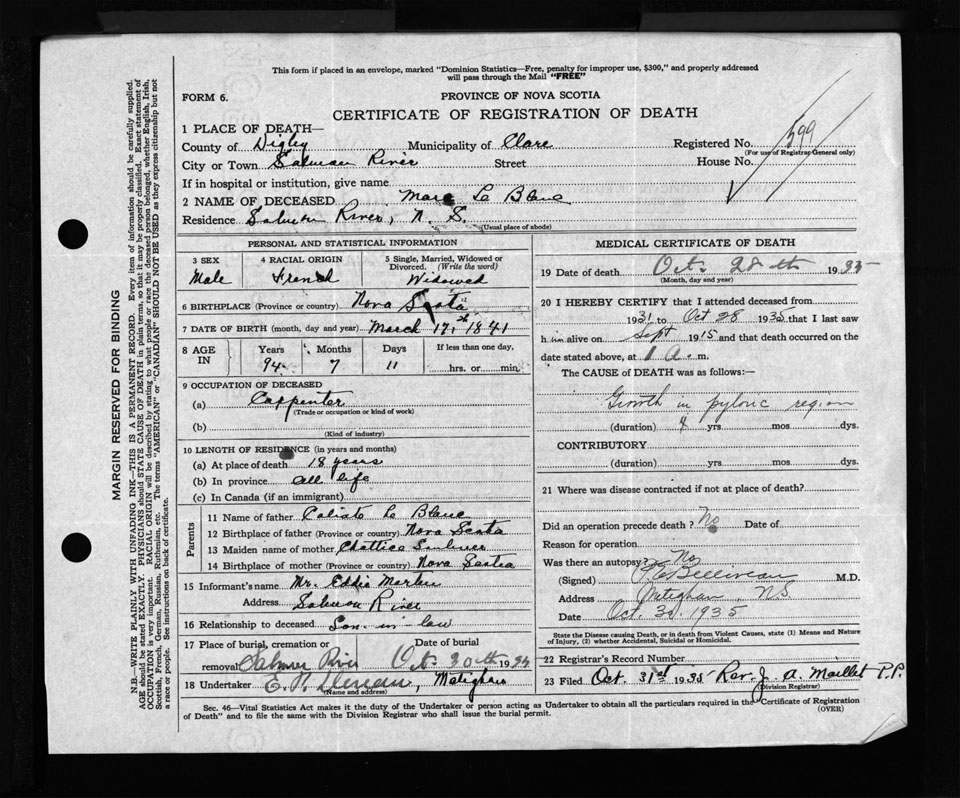 This form if placed in an envelope, marked "Dominion Statistics—Free, penalty for improper use, $300," and properly addressed
will pass through the Mail "FREE"
FORM 6.
PROVINCE OF NOVA SCOTIA
CERTIFICATE OF REGISTRATION OF DEATH
1 PLACE OF DEATH—
County of Digby Municipality of Clare Registered No. 599
(For use of Registrar General only)
City or Town Salmon River Street House No.
If in hospital or institution, give name
2 NAME OF DECEASED Marc Le Blanc
Residence Salmon River, N. S.
(Usual place of abode)
PERSONAL AND STATISTICAL INFORMATION
3 SEX 4 RACIAL ORIGIN 5 Single, Married, Widowed or
Divorced. (Write the word)
Male French Widowed
6 BIRTHPLACE (Province or country) Nova Scotia
7 DATE OF BIRTH (month, day and year) March 17th 1841
8 AGE IN Years Months Days If less than one day,
94 7 11 hrs. or min.
9 OCCUPATION OF DECEASED
(a) Carpenter
(Trade or occupation or kind of work)
(b)
(Kind of industry)
10 LENGTH OF RESIDENCE (in years and months)
(a) At place of death 18 years
(b) In province all life
(c) In Canada (if an immigrant)
Parents
11 Name of father Le Blanc
12 Birthplace of father (Province or country) Nova Scotia
13 Maiden name of mother
14 Birthplace of mother (Province or country) Nova Scotia
15 Informant's name Mr. Eddie
Address Salmon River
16 Relationship to deceased Son-in-law
17 Place of burial, cremation or Date of burial
removal Salmon River Oct. 30th 1935
18 Undertaker E. P. Meteghan
(Name and address)
MEDICAL CERTIFICATE OF DEATH
19 Date of death Oct. 28th 1935
(Month, day and year)
20 I HEREBY CERTIFY that I attended deceased from
1931 to Oct 28 1935 that I last saw
him alive on Sept 1915 and that death occurred on the
date stated above, at 1 a. m.
The CAUSE of DEATH was as follows:—
Growth in pyloric region
(duration) 4 yrs mos dys.
CONTRIBUTORY
(duration) yrs. mos. dys.
21 Where was disease contracted if not at place of death?
Did an operation precede death? No Date of
Reason for operation
Was there an autopsy? No
(Signed) Belliveau M.D.
Address Meteghan, NS
Date Oct. 30, 1935
State the Disease causing Death, or in death from Violent Causes, state (1) Means and Nature
of Injury, (2) whether Accidental, Suicidal or Homicidal.
22 Registrar's Record Number
23 Filed Oct. 31st 1935 Rev. J. A. Maillet P.P.
(Division Registrar)
Sec. 46—Vital Statistics Act makes it the duty of the Undertaker or person acting as Undertaker to obtain all the particulars required in the Certificate of Registration
of Death" and to file the same with the Division Registrar who shall issue the burial permit.
(OVER)
MARGIN RESERVED FOR BINDING
N.B.—WRITE PLAINLY WITH UNFADING INK—THIS IS A PERMANENT RECORD. Every item of information should be carefully supplied.
AGE should be stated EXACTLY. PHYSICIANS should STATE CAUSE OF DEATH in plain terms, so that it may be properly classified. Exact statement of
OCCUPATION is very important. RACIAL ORIGIN will be described by stating to what people or race the deceased person belonged, whether English, Irish,
Scottish, French, German, Russian, Ruthenian, etc. The terms "AMERICAN" or "CANADIAN" SHOULD NOT BE USED as they express citizenship but not
a race or people. See instructions on back of certificate.